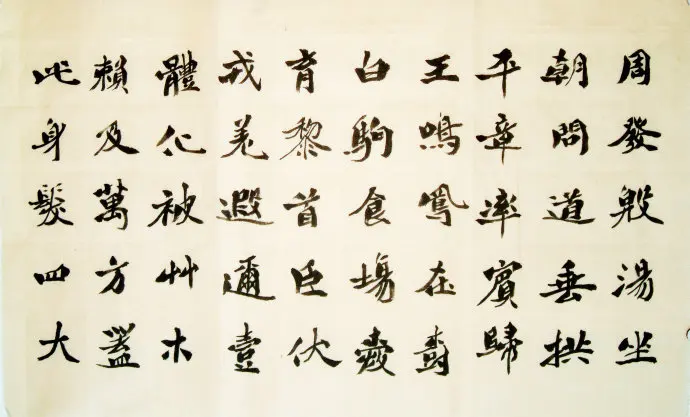 周發殷湯坐
朝問道垂拱
平章率賓歸
王鳴鳳在尌
白駒食場愛
育黎首臣伏
戎羌遐邇壹
體化被艸木
賴及萬方蓋
此身髮四大